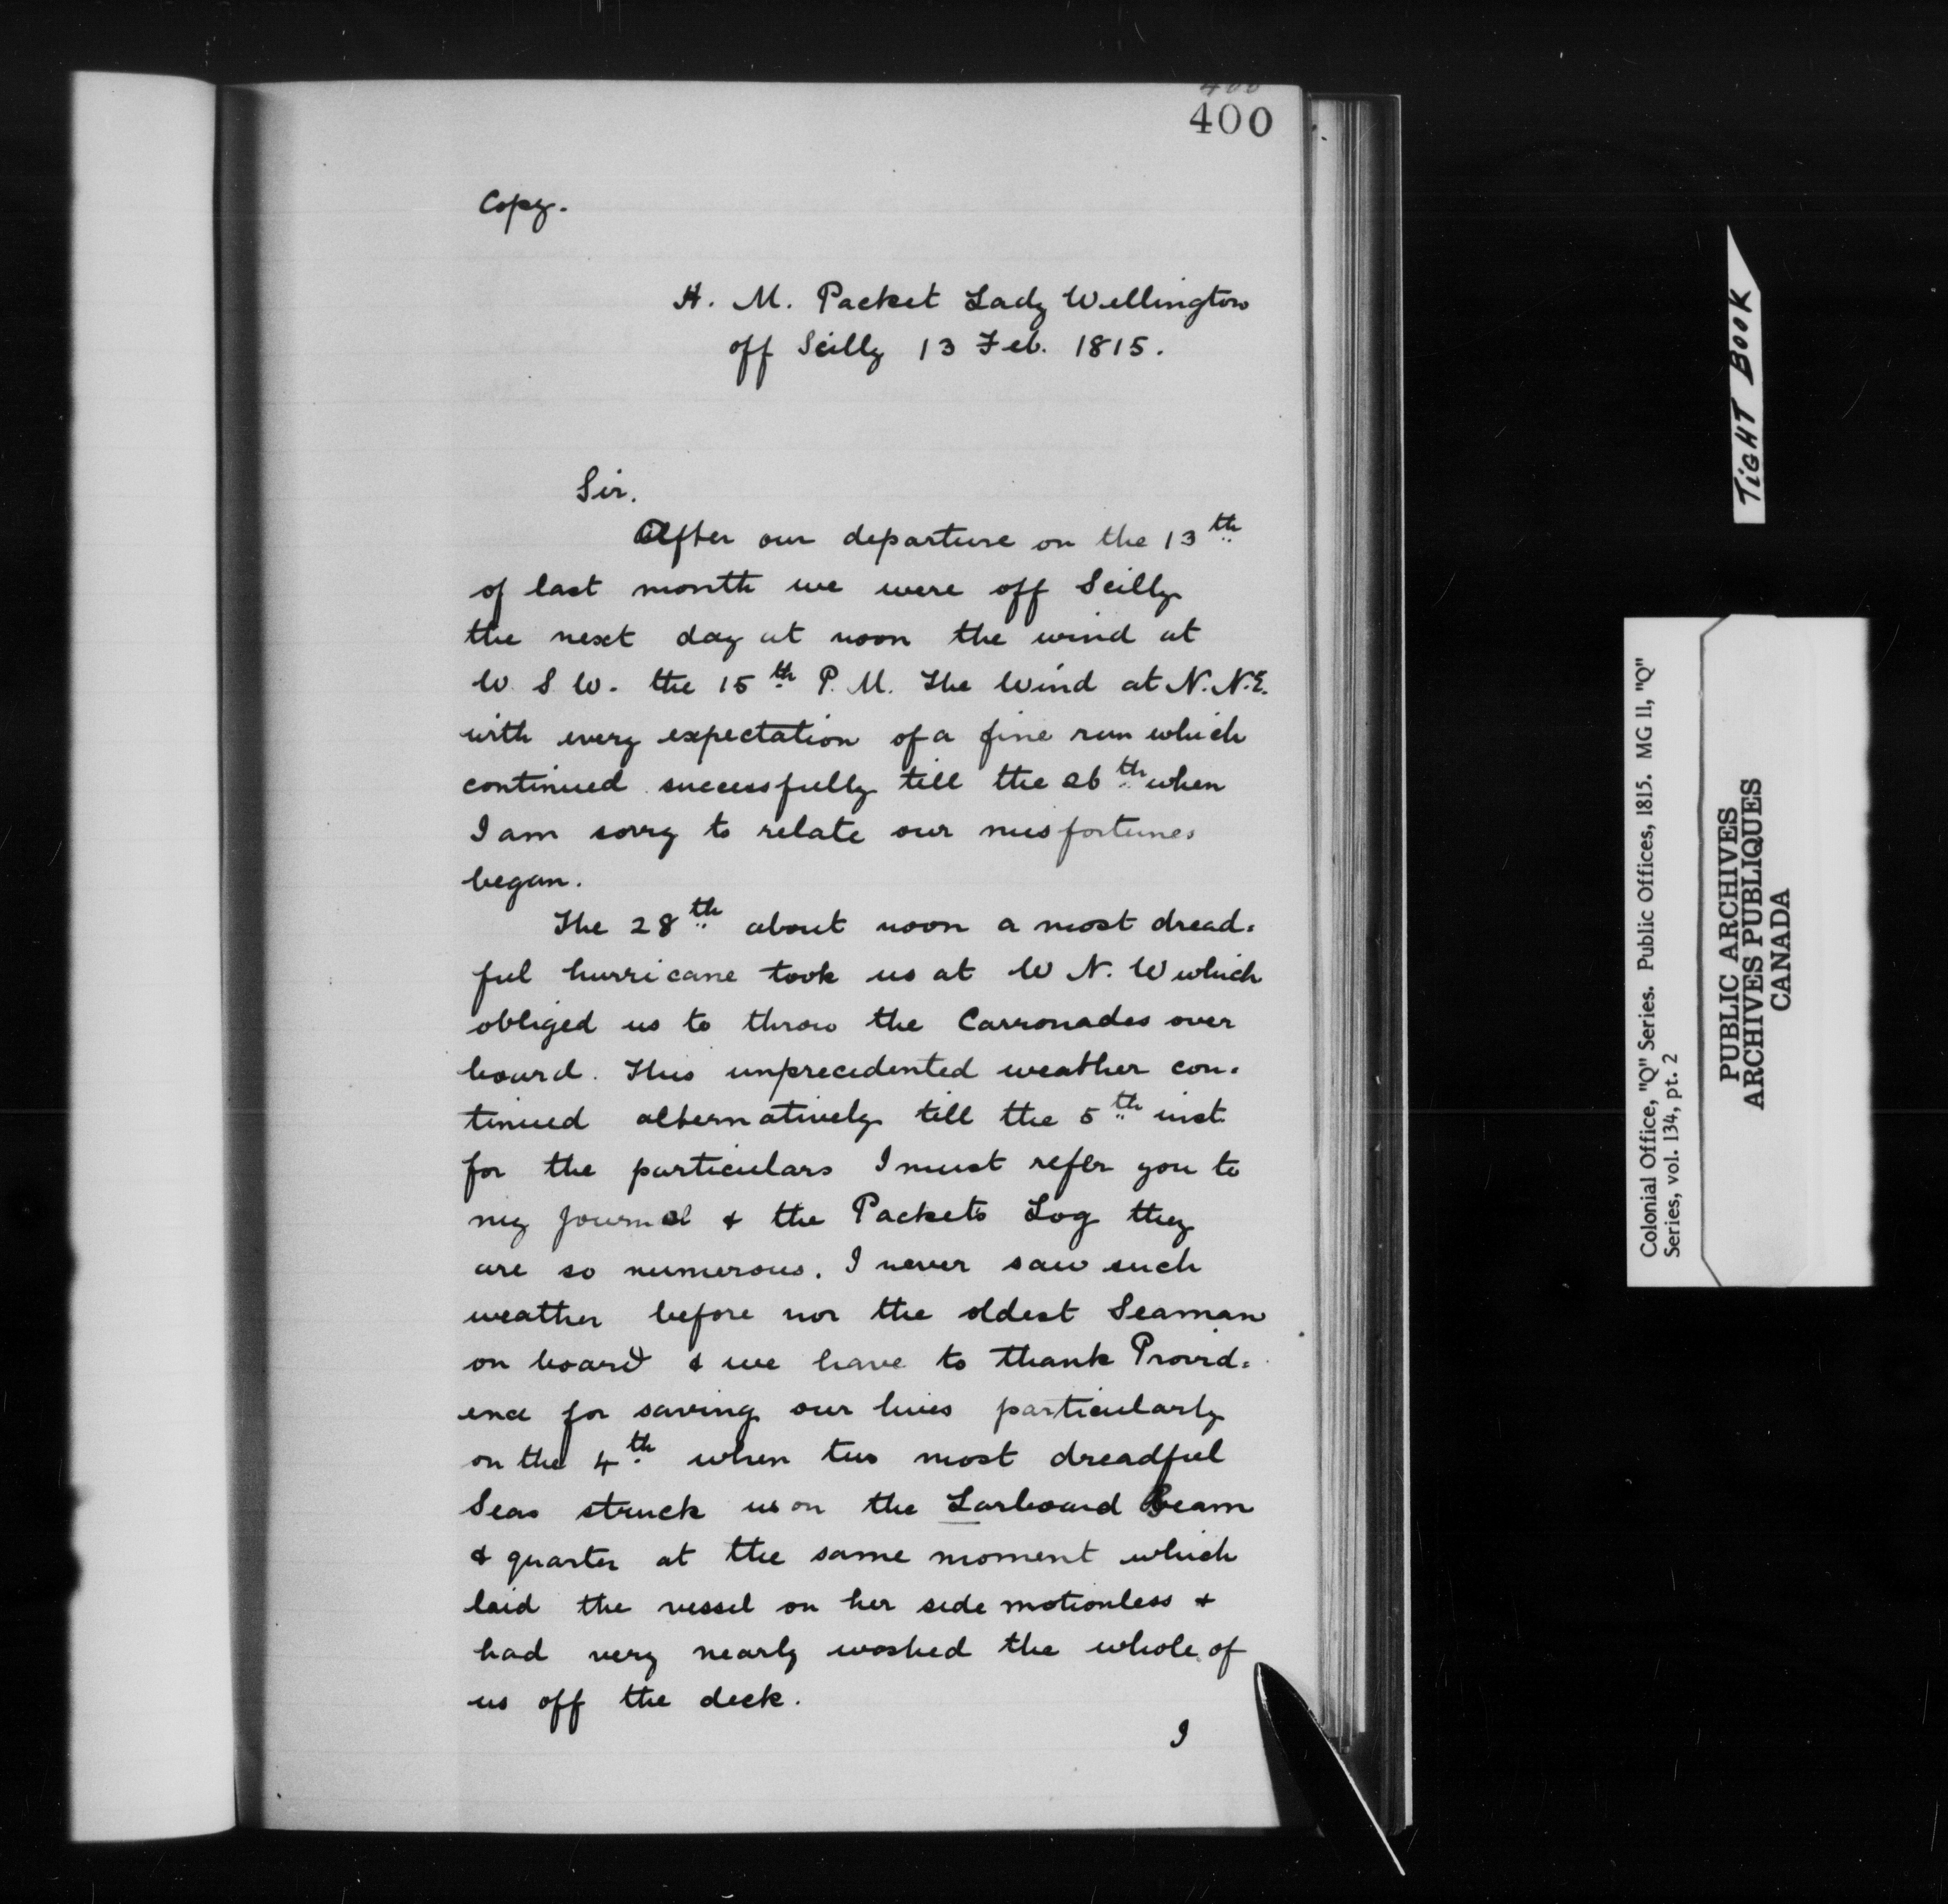 400
400
Copy.
H. M. Packet Lady Wellington
off Scilly 13 Feb. 1815.
Sir.
After our departure on the 13th
of last month we were off Scilly
the next day at noon the wind at
W. S W. the 15th P. M. The Wind at N. N.E.
with every expectation of a fine run which
continued successfully till the 26th when
I am sorry to relate our misfortunes
began.
The 28th about noon a most dread=
ful hurricane took us at W N. W which
obliged us to throw the Carronades over
board. This unprecedented weather con=
tinued alternatively till the 5th inst
for the particulars I must refer you to
my journal & the Packets Log they
are so numerous. I never saw such
weather before nor the oldest Seaman
on board & we have to thank Provid=
ence for saving our lives particularly
on the 4th when two most dreadful
Seas struck us on the Larboard Beam
& quarter at the same moment which
laid the vessel on her side motionless &
had very nearly washed the whole of
us off the deck.
I
TIGHT BOOK
Colonial Office, "Q" Series. Public Offices, 1815. MG 11, "Q"
Series, vol. 134, pt. 2
PUBLIC ARCHIVES
ARCHIVES PUBLIQUES
CANADA